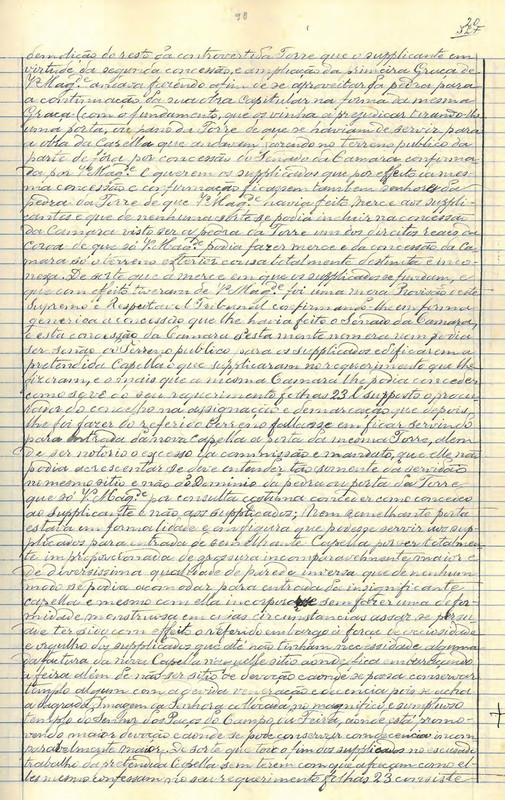 90
20
327
demolição do resto da controvertida Torre que o supplicante em
virtude da segunda concessão, e ampliação da primeira Graça de
V.ª Mag.de andava fazendo afim de se aproveitar da pedra para
a continuação da sua obra Capitular na forma da mesma
Graça (com o fundamento, que os vinha a prejudicar tirando-lhe
uma porta, ou pano da Torre de que se haviam de servir para
a obra da Capella que andavam fazendo no terreno publico da
parte de fóra, por concessão do Senado da Camara confirma-
da por V.ª Mag.de e querem os supplicados que por effeito da mes-
ma concessão e confirmação ficassem tambem senhores da
pedra da Torre de que V.ª Mag.de havia feito merce aos suppli-
cantes e que de nenhuma sorte se podia incluir na concessão
da Camara visto ser a pedra da Torre um dos direitos reaes da
Coroa de que só V.ª Mag.de podia fazer merce e da concessão da Ca-
mara só o terreno exterior cousa totalmente distincta e inco-
nexa. De sorte que a merce em que os supplicados se fundam, e
que com effeito tiveram de V.ª Mag.de foi uma mera Provisão deste
Supremo e Respeitavel Tribunal confirmando-lhe em forma
generica a concessão que lhe havia feito o Senado da Camara,
e esta concessão da Camara certamente non era nem podia
ser senão do terreno publico para os supplicados edificarem a
pretendida Capella o que supplicaram no requerimento que lhe
fizeram, e o mais que a mesma Camara lhe podia conceder
como se vê do seu requerimento folhas 23 e supposto o procu-
rador do concelho na designação e demarcação que depois
lhe foi fazer do referido terreno fallasse em ficar servindo
para entrada da nova Capella a porta da mesma Torre, alem
de ser notorio o excesso da commissão e mandato, que elle não
podia acrescentar se deve entender tão somente da servidão
no mesmo sitio e não do Dominio da pedra ou porta da Torre
que só V.ª Mag.de por consulta costuma conceder como concedeo
ao supplicante e não aos supplicados; Nem semelhante porta
estava em formalidade e em figura que podesse servir aos sup-
plicados para entrada de semelhante Capella por ser totalmen-
te improporcionada de grossura incomparavelmente maior e
de diversissima qualidade de parede inversa que de nenhum
modo se podia acomodar para entrada da insignificante
capella e mesmo com ella incorporar-se sem fazer uma defor-
midade monstruosa em cujas circunstancias assas se persu-
ade ter sido com effeito o referido embargo á força de ociosidade
e orgulho dos supplicados que até não tinham necessidade alguma
da factura da nova Capella naquelle sitio aonde fica embaraçando
a feira alem de não ser sitio de devoção e aonde se possa conservar
templo algum com a devida veneração e decencia pois se acha
a Sagrada Imagem da Senhora collocada no magnifico e sumptuoso
templo do Senhor dos Paços do Campo da Feira, aonde está promo-
vendo maior devoção e aonde se pode conservar com decencia incom-
paravelmente maior. De sorte que todo o fim dos supplicados no escusado
trabalho da pretendida Capella sem terem com que a façam como el-
les mesmo confessam no seu requerimento folhas 23 consiste
+